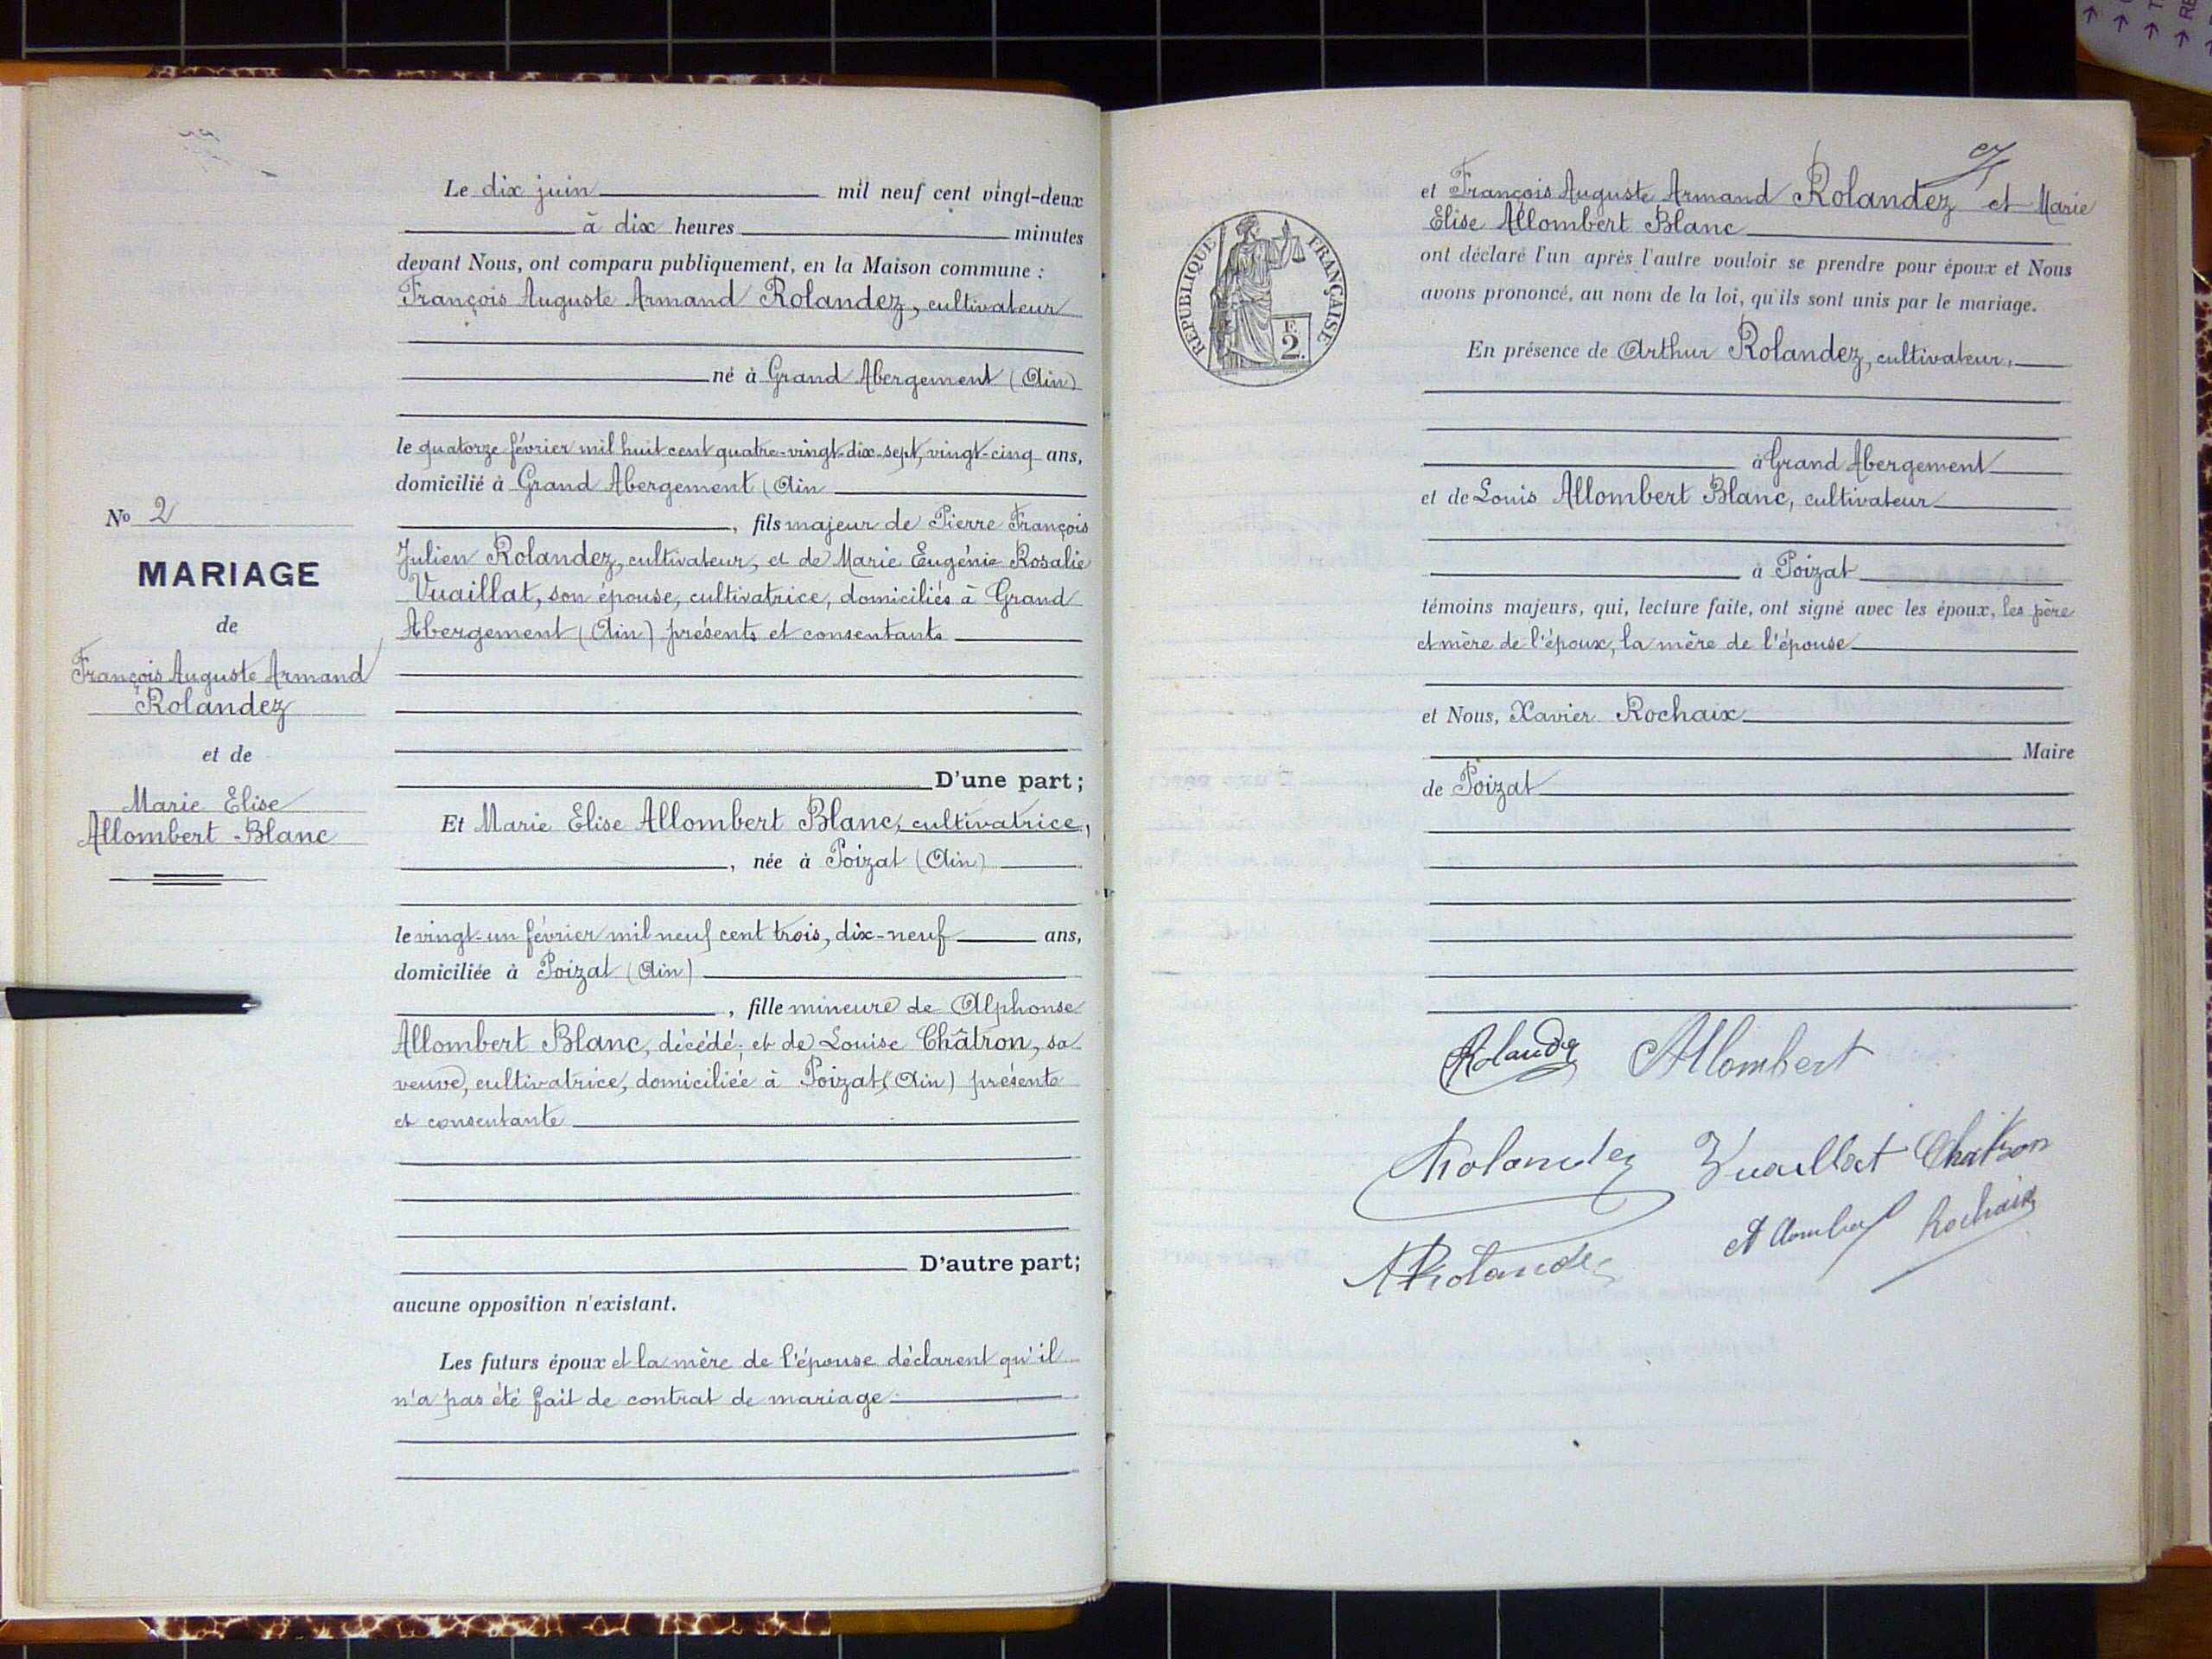 Le dix juin mil neuf cent vingt-deux
à dix heures minutes
devant Nous, ont comparu publiquement, en la Maison commune :
François Auguste Armand Rolandez, cultivateur
né à Grand Abergement (Ain)
le quatorze février mil huit cent quatre-vingt-dix-sept, vingt-cinq ans,
domicilié à Grand Abergement (Ain
, fils majeur de Pierre François
Julien Rolandez, cultivateur, et de Marie Eugénie Rosalie
Vuaillat, son épouse, cultivatrice, domiciliés à Grand
Abergement (Ain) présents et consentants
D'une part;
Et Marie Elise Allombert Blanc, cultivatrice,
, née à Poizat (Ain)
le vingt-un février mil neuf cent trois, dix-neuf ans,
domiciliée à Poizat (Ain)
, fille mineure de Alphonse
Allombert Blanc, décédé; et de Louise Châtron, sa
veuve, cultivatrice, domiciliée à Poizat (Ain) présente
et consentante
D'autre part;
aucune opposition n'existant.
Les futurs époux et la mère de l'épouse déclarent qu'il
n'a pas été fait de contrat de mariage
No 2
MARIAGE
de
François Auguste Armand
Rolandez
et de
Marie Elise
Allombert-Blanc
et François Auguste Armand Rolandez et Marie
Elise Allombert Blanc
ont déclaré l'un après l'autre vouloir se prendre pour époux et Nous
avons prononcé, au nom de la loi, qu'ils sont unis par le mariage.
En présence de Arthur Rolandez, cultivateur,
à Grand Abergement
et de Louis Allombert Blanc, cultivateur
à Poizat
témoins majeurs, qui, lecture faite, ont signé avec les époux, les père
et mère de l'époux, la mère de l'épouse
et Nous, Xavier Rochaix
Maire
de Poizat
RÉPUBLIQUE FRANÇAISE
F. 2.
Rolandez Allombert
Rolandez Vuaillat Chatron
A Rolandez Allombert Rochaix